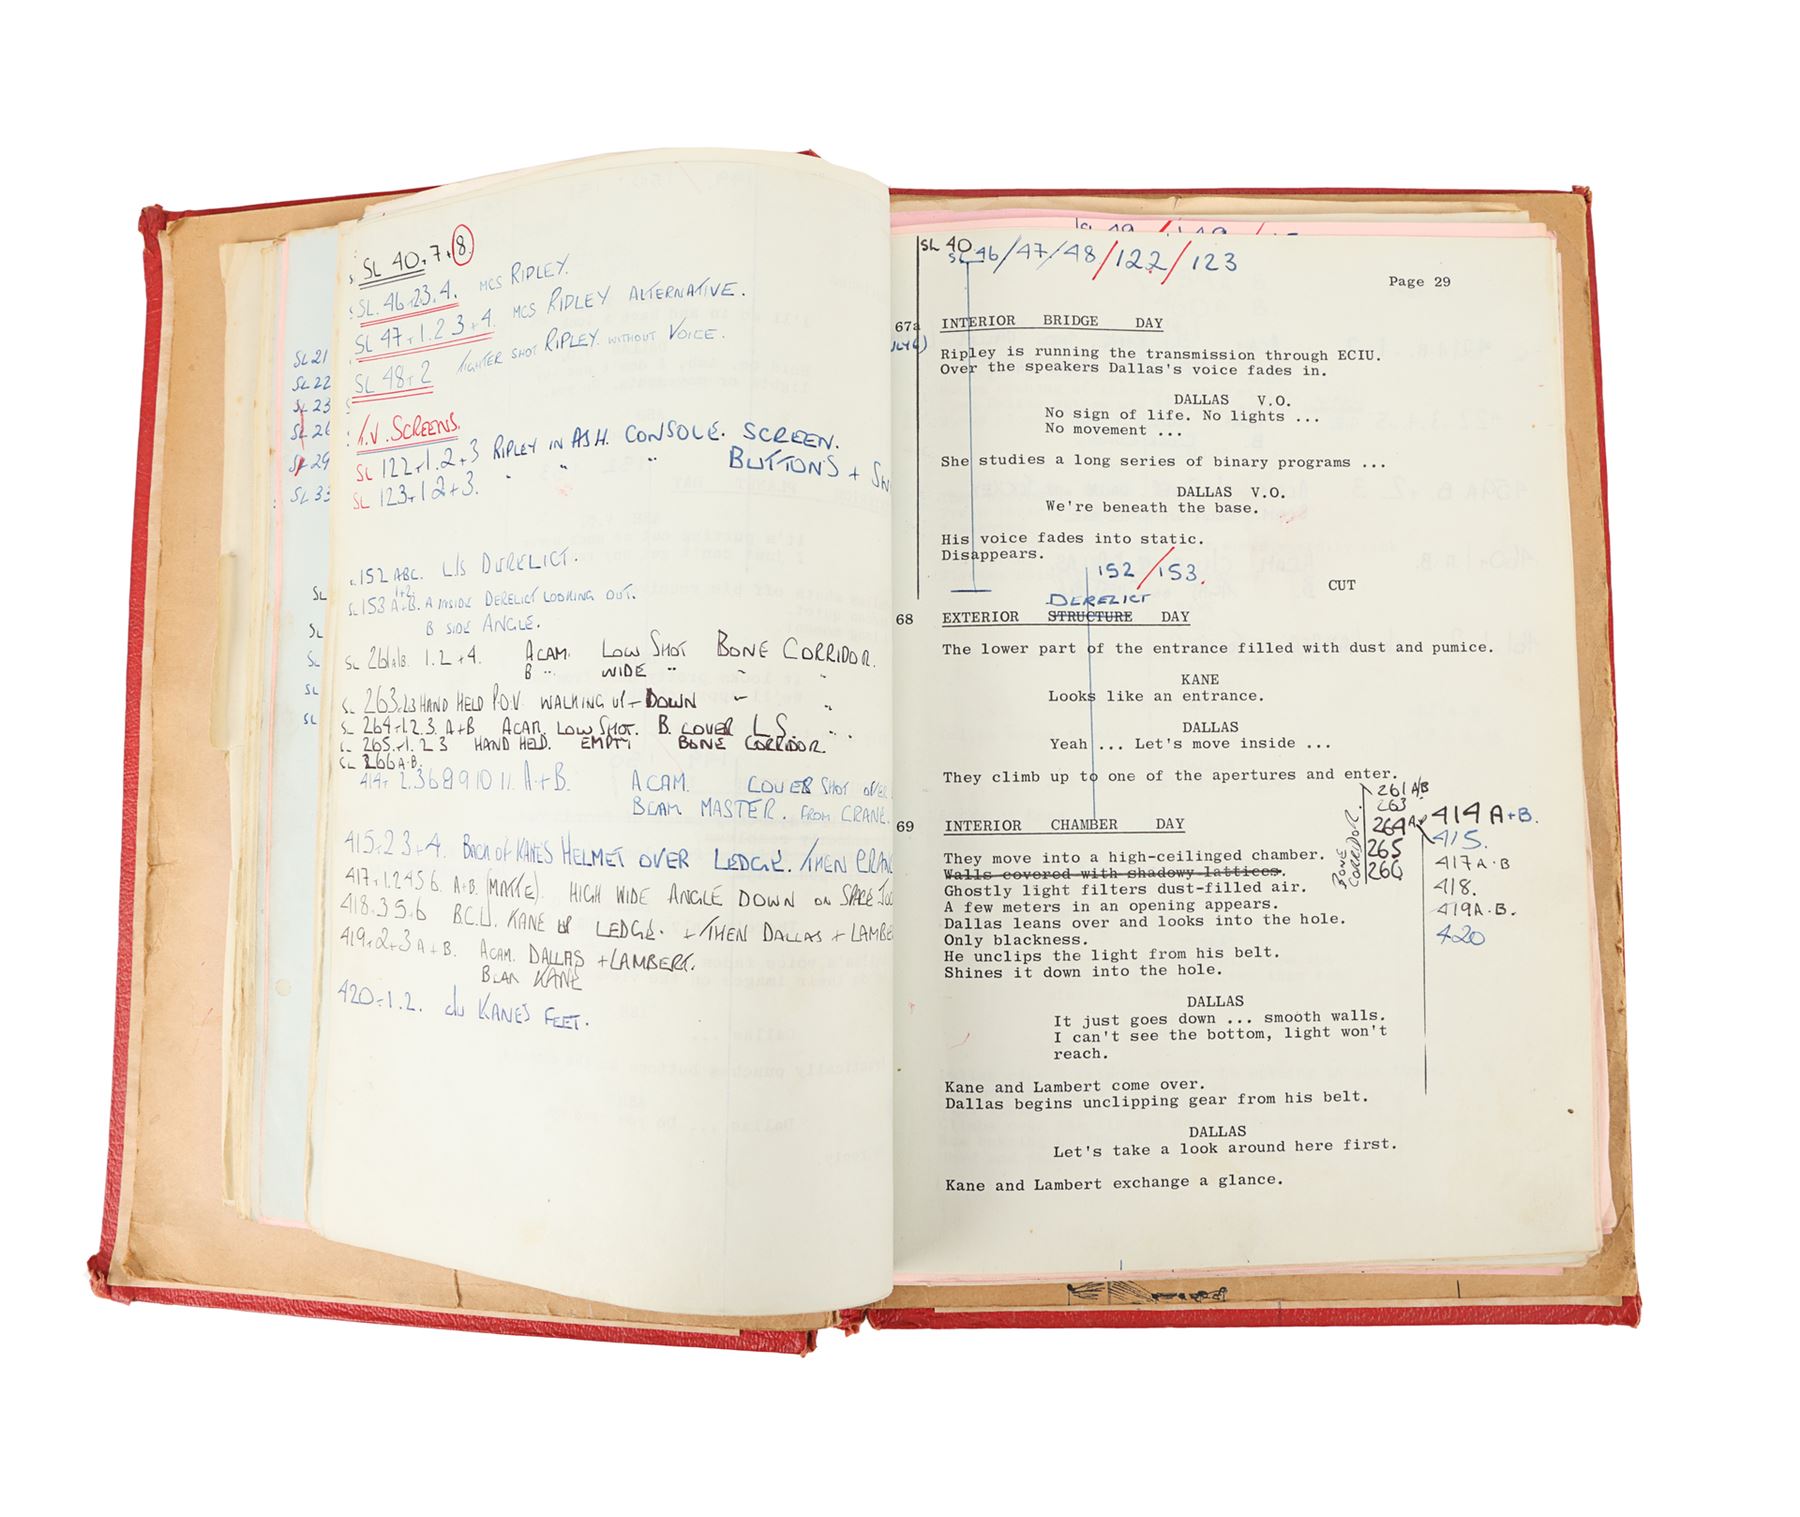 SL 40,7,8
SL. 46,2,3,4. MCS RIPLEY.
SL 47,1.2.3+4. MCS RIPLEY ALTERNATIVE.
SL 48,2 TIGHTER SHOT RIPLEY. WITHOUT VOICE.
T.V. SCREENS.
SL 122,1.2+3 RIPLEY IN ASH. CONSOLE. SCREEN.
SL 123,1 2+3. " " " BUTTONS +
152 ABC. L/S DERELICT.
SL 153 A+B. A INSIDE DERELICT LOOKING OUT.
B SIDE ANGLE.
SL 261A/B. 1.2+4. A CAM. LOW SHOT BONE CORRIDOR.
B " WIDE " " "
SL 263,2,3 HAND HELD P.O.V. WALKING UP - DOWN " "
SL 264,1.2.3. A+B A CAM. LOW SHOT. B. COVER L.S. " "
SL 265,1.2 3 HAND HELD. EMPTY BONE CORRIDOR.
SL 266 A.B.
414, 2.3 6 8 9 10 11. A+B. A CAM. COVER SHOT OVER
B CAM MASTER. FROM CRANE.
415,2 3+4. BACK OF KANES HELMET OVER LEDGE. THEN CRANE
417,1.2 4 5 6. A+B. (MATTE). HIGH WIDE ANGLE DOWN ON SPACE
418,3.5.6 B.C.U. KANE UP LEDGE. + THEN DALLAS +
419,2+3 A+B. A CAM. DALLAS + LAMBERT.
B CAM KANE
420,1.2. c/u KANES FEET.
SL 21
SL 22
SL 23
SL 26
SL 29
SL 33
SL
SL
SL
SL
SL
SL 40
SL 46/47/48/122/123
Page 29
67a INTERIOR BRIDGE DAY
Ripley is running the transmission through ECIU.
Over the speakers Dallas's voice fades in.
DALLAS V.O.
No sign of life. No lights ...
No movement ...
She studies a long series of binary programs ...
DALLAS V.O.
We're beneath the base.
His voice fades into static.
Disappears.
152/153.
CUT
DERELICT
68 EXTERIOR STRUCTURE DAY
The lower part of the entrance filled with dust and pumice.
KANE
Looks like an entrance.
DALLAS
Yeah ... Let's move inside ...
They climb up to one of the apertures and enter.
69 INTERIOR CHAMBER DAY
They move into a high-ceilinged chamber.
Walls covered with shadowy lattices.
Ghostly light filters dust-filled air.
A few meters in an opening appears.
Dallas leans over and looks into the hole.
Only blackness.
He unclips the light from his belt.
Shines it down into the hole.
DALLAS
It just goes down ... smooth walls.
I can't see the bottom, light won't
reach.
Kane and Lambert come over.
Dallas begins unclipping gear from his belt.
DALLAS
Let's take a look around here first.
Kane and Lambert exchange a glance.
BONE
CORRIDOR.
261 A/B
263
264
265
266
414 A+B.
415.
417 A.B
418.
419 A.B.
420